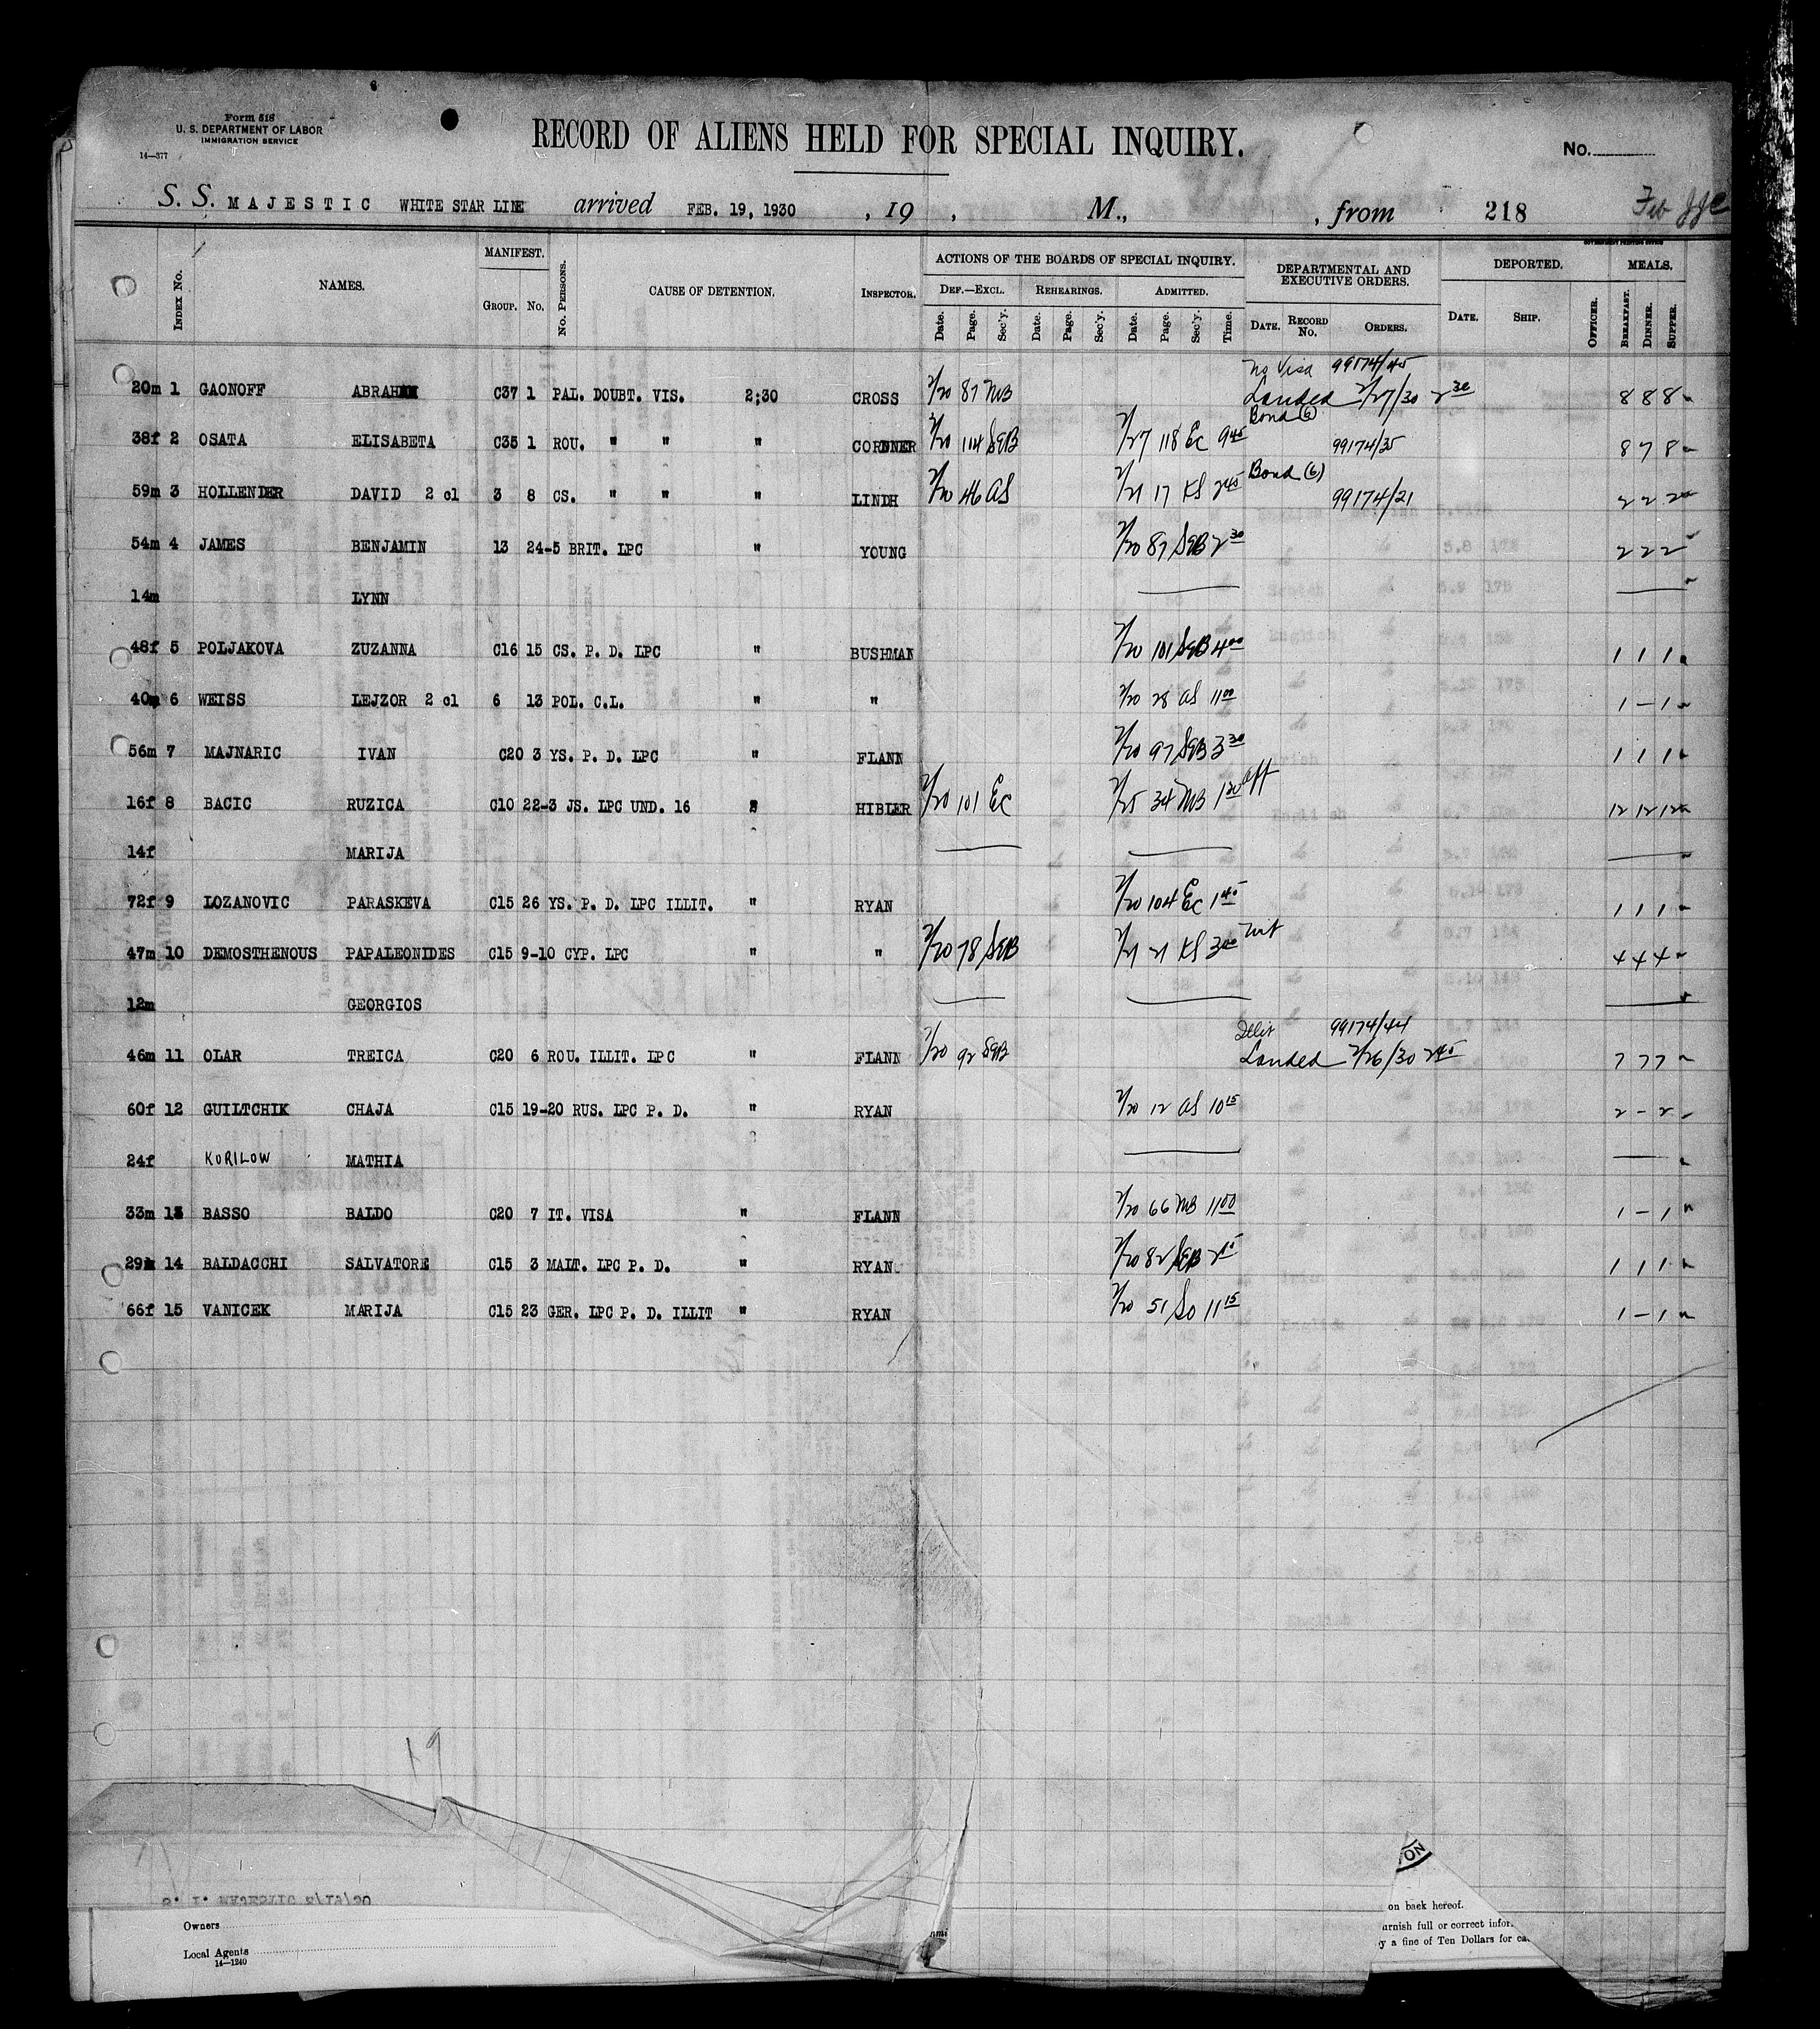 Form 518
U. S. DEPARTMENT OF LABOR
IMMIGRATION SERVICE
14—377
RECORD OF ALIENS HELD FOR SPECIAL INQUIRY.
No.
S. S. MAJESTIC WHITE STAR LINE arrived FEB. 19, 1930 , 19 , M., , from 218 Feb
GOVERNMENT PRINTING OFFICE
INDEX NO. NAMES. MANIFEST. GROUP. NO. NO. PERSONS. CAUSE OF DETENTION. INSPECTOR. ACTIONS OF THE BOARDS OF SPECIAL INQUIRY. DEF.—EXCL. REHEARINGS. ADMITTED. DEPARTMENTAL AND EXECUTIVE ORDERS. DEPORTED. MEALS.
Date. Page. Sec'y. Date. Page. Sec'y. Date. Page. Sec'y. Time. DATE. RECORD No. ORDERS. DATE. SHIP. OFFICER. BREAKFAST. DINNER. SUPPER.
No Visa 99174/45
20m 1 GAONOFF ABRAHAM C37 1 PAL. DOUBT. VIS. 2:30 CROSS 2/20 87 MB Landed 2/27/30 2 30 8 8 8
Bond (6)
38f 2 OSATA ELISABETA C35 1 ROU. " " " CORNNER 2/20 114 SEB 2/27 118 EC 9 45 99174/35 8 7 8
Bond (6)
59m 3 HOLLENDER DAVID 2 cl 3 8 CS. " " " LINDH 2/20 46 AS 2/21 17 KS 2 45 99174/21 2 2 2
54m 4 JAMES BENJAMIN 13 24-5 BRIT. LPC " YOUNG 2/20 87 SEB 2 30 2 2 2
14m LYNN
48f 5 POLJAKOVA ZUZANNA C16 15 CS. P. D. LPC " BUSHMAN 2/20 101 SEB 4 00 1 1 1
40m 6 WEISS LEJZOR 2 cl 6 13 POL. C.L. " " 2/20 28 AS 11 00 1 – 1
56m 7 MAJNARIC IVAN C20 3 YS. P. D. LPC " FLANN 2/20 97 SEB 3 30 1 1 1
16f 8 BACIC RUZICA C10 22-3 JS. LPC UND. 16 " HIBLER 2/20 101 EC 2/25 34 MB 1 20 aff 12 12 12
14f MARIJA
72f 9 LOZANOVIC PARASKEVA C15 26 YS. P. D. LPC ILLIT. " RYAN 2/20 104 EC 1 45 1 1 1
47m 10 DEMOSTHENOUS PAPALEONIDES C15 9-10 CYP. LPC " " 2/20 78 SEB 2/21 21 KS 3 00 wit 4 4 4
12m GEORGIOS
99174/44
46m 11 OLAR TREICA C20 6 ROU. ILLIT. LPC " FLANN 2/20 92 SEB Landed 2/26/30 2 45 7 7 7
60f 12 GUILTCHIK CHAJA C15 19-20 RUS. LPC P. D. " RYAN 2/20 12 AS 10 15 2 – 2
24f KORILOW MATHIA
33m 13 BASSO BALDO C20 7 IT. VISA " FLANN 2/20 66 MB 11 00 1 – 1
29m 14 BALDACCHI SALVATORE C15 3 MALT. LPC P. D. " RYAN 2/20 82 SEB 2 15 1 1 1
66f 15 VANICEK MARIJA C15 23 GER. LPC P. D. ILLIT " RYAN 2/20 51 SO 11 15 1 – 1
19
Owners
Local Agents
14—1240
on back hereof.
urnish full or correct infor
y a fine of Ten Dollars for ca